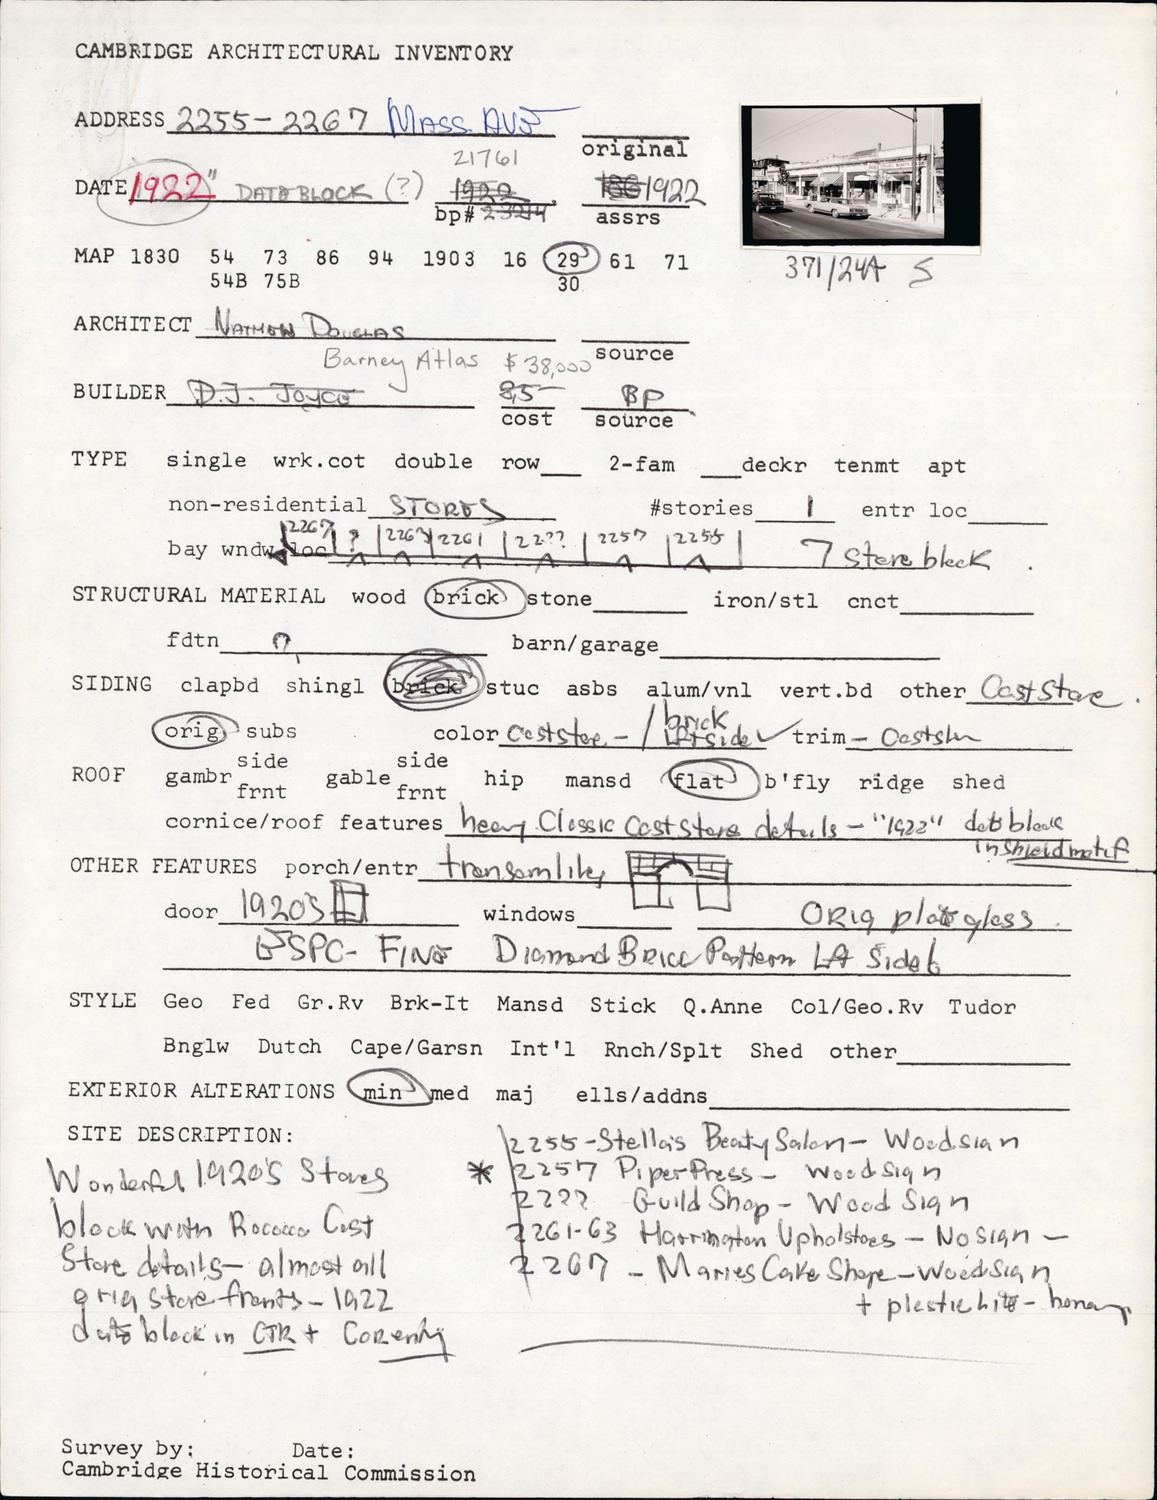 CAMBRIDGE ARCHITECTURAL INVENTORY
ADDRESS 2255-2267 MASS AVE
original
21761
DATE 1922" DATE BLOCK (?) 1922 1922
bp# assrs
MAP 1830 54 73 86 94 1903 16 29 61 71
54B 75B 30
371/24A S
ARCHITECT NATHAN DOUGLAS
source
Barney Atlas $38,000
BUILDER D.J. JOYCE 85- BP
cost source
TYPE single wrk.cot double row 2-fam deckr tenmt apt
non-residential STORES #stories 1 entr loc
bay wndw loc 2267 ? 2263 2261 22?? 2257 2255 7 store block
STRUCTURAL MATERIAL wood brick stone iron/stl cnct
fdtn ? barn/garage
SIDING clapbd shingl brick stuc asbs alum/vnl vert.bd other Cast Stone
orig subs color cast stone - / brick left side trim - Cast stn
ROOF gambr side frnt gable side frnt hip mansd flat b'fly ridge shed
cornice/roof features heavy Classic Cast Stone details - "1922" date block
in shield motif
OTHER FEATURES porch/entr transom lites
door 1920'S windows ORIG plate glass
ESPC- FINE DIAMOND BRICK Pattern Lft Side
STYLE Geo Fed Gr.Rv Brk-It Mansd Stick Q.Anne Col/Geo.Rv Tudor
Bnglw Dutch Cape/Garsn Int'l Rnch/Splt Shed other
EXTERIOR ALTERATIONS min med maj ells/addns
SITE DESCRIPTION:
Wonderful 1920'S Stores
block with Rococo Cast
Stone details - almost all
orig store fronts - 1922
date block in CTR +
2255 - Stella's Beauty Salon - Wood sign
* 2257 Piper Press - Wood sign
22?? Guild Shop - Wood Sign
2261-63 Harrington Upholsters - No sign -
2267 - Maries Cake Shope - Wood sign
+ plastic
Survey by: Date:
Cambridge Historical Commission